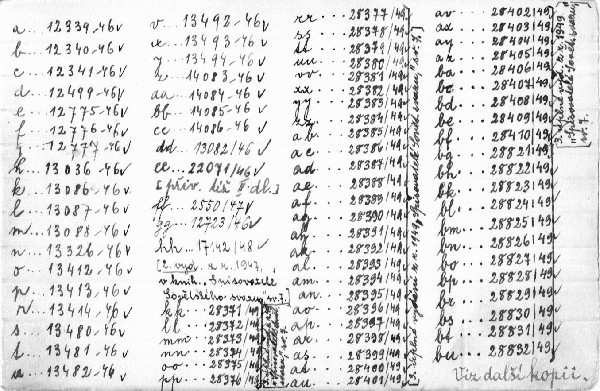 a...12339-46✓
b...12340-46✓
c...12341-46✓
d...12499-46✓
e...12775-46✓
f...12776-46✓
g...12777-46✓
h...13036-46✓
k...13086-46✓
l...13087-46✓
m...13088-46✓
n...13326-46✓
o...13412-46✓
p...13413-46✓
r...13414-46✓
s...13480-46✓
t...13481-46✓
u...13482-46✓
v...13492-46✓
x...13493-46✓
y...13494-46✓
z...14083-46✓
aa...14084-46✓
bb...14085-46✓
cc...14086-46✓
dd...13082/46✓
ee...22071/46✓
[přív. liš II dl.]
ff...2550/47✓
gg...12723/46✓
hh...17142/48✓
[2. vyd. z r. 1947,
v knih.
kk...28371/49
ll...28372/49
mm...28373/49
nn...28374/49
oo...28375/49
pp...28376/49
rr...28377/49
ss...28378/49
tt...28379/49
uu...28380/49
vv...28381/49
xx...28382/49
yy...28383/49
zz...28384/49
ab...28385/49
ac...28386/49
ad...28387/49
ae...28388/49
af...28389/49
ag...28390/49
ah...28391/49
ak...28392/49
al...28393/49
am...28394/49
an...28395/49
ao...28396/49
ap...28397/49
ar...28398/49
as...28399/49
at...28400/49
au...28401/49
av...28402/49
ax...28403/49
ay...28404/49
az...28405/49
ba...28406/49
bc...28407/49
bd...28408/49
be...28409/49
bf...28410/49
bg...28821/49
bh...28822/49
bk...28823/49
bl...28824/49
bm...28825/49
bn...28826/49
bo...28827/49
bp...28828/49
br...28829/49
bs...28830/49
bt...28831/49
bu...28832/49
Viz další kopii.